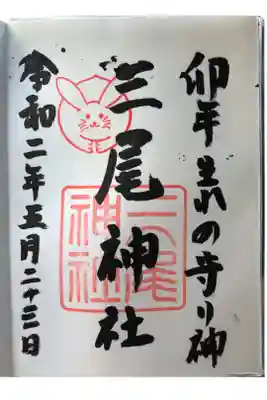 卯年生れの守り神
三尾神社
三尾
神社
令和二年五月二十三日